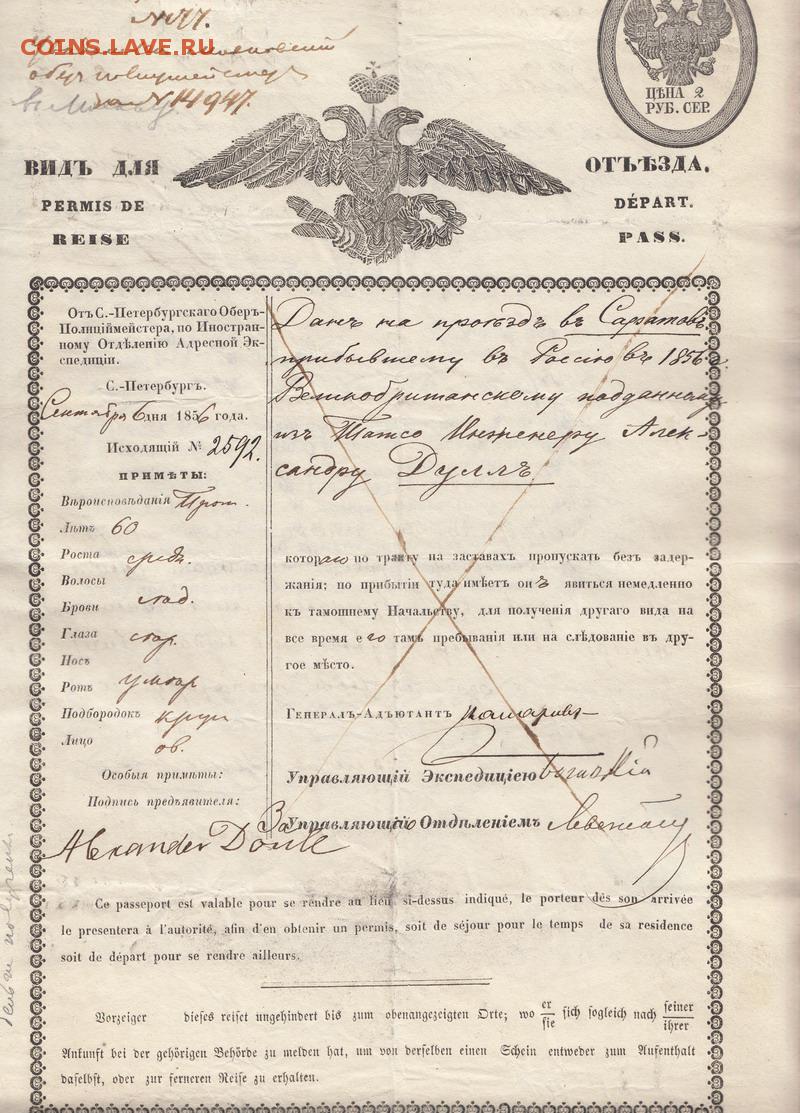 № 77.
COINS.LAVE.RU
№ 14947.
ЦѢНА 2
РУБ. СЕР.
ВИДЪ ДЛЯ ОТЪѢЗДА.
PERMIS DE DÉPART.
REISE PASS.
ОтъС.-Петербургскаго Оберъ-
Полиціймейстера, по Иностран-
ному Отдѣленію Адресной Эк-
спедиціи.
С.-Петербургъ.
Сентября 6 дня 1856 года.
Исходящій № 2592.
ПРИМѢТЫ:
Вѣроисповѣданія Прот.
Лѣтъ 60
Роста средн.
Волосы
Брови
Глаза
Носъ
Ротъ умѣр
Подбородокъ кругл
Лицо ов.
Особыя примѣты:
Подпись предъявителя:
Alexander Doull
Данъ на проѣздъ въ Саратовъ
прибывшему въ Россію въ 1856 г.
Великобританскому подданному
изъ Инженеру Алек-
сандру Дуллъ
котораго по тракту на заставахъ пропускать безъ задер-
жанія; по прибытіи туда имѣетъ онъ явиться немедленно
къ тамошнему Начальству, для полученія другаго вида на
все время его тамъ пребыванія или на слѣдованіе въ дру-
гое мѣсто.
Генералъ-Адъютантъ
Управляющій Экспедиціею
За Управляющаго Отдѣленіемъ
Ce passeport est valable pour se rendre au lieu si-dessus indiqué, le porteur dés son arrivée
le presentera à l'autorité, afin d'en obtenir un permis, soit de séjour pour le temps de sa residence
soit de départ pour se rendre ailleurs.
Vorzeiger dieses reiset ungehindert bis zum obenangezeigten Orte; wo er/sie sich sogleich nach seiner/ihrer
Ankunft bei der gehörigen Behörde zu melden hat, um von derselben einen Schein entweder zum Aufenthalt
daselbst, oder zur ferneren Reise zu erhalten.